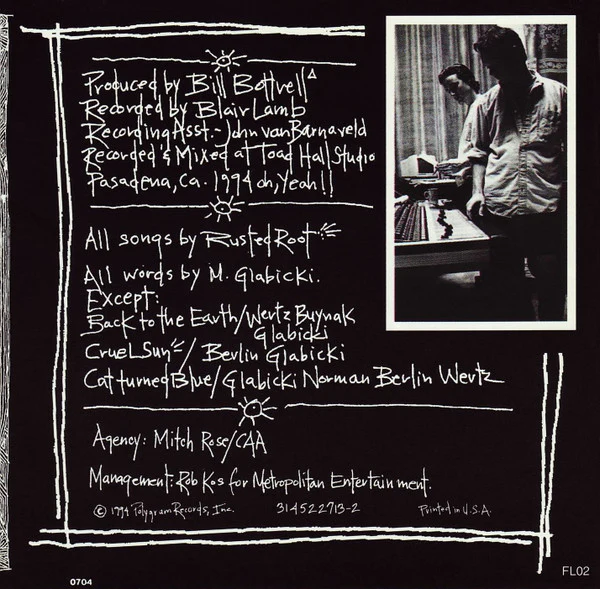 Produced by Bill Bottrell
Recorded by Blair Lamb
Recording Asst.- John vanBarnaveld
Recorded & Mixed at Toad Hall Studio
Pasadena, Ca. 1994 oh, Yeah!!
All songs by Rusted Root
All words by M. Glabicki.
Except:
Back to the Earth/Wertz Buynak
Glabicki
Cruel Sun/Berlin Glabicki
Cat turned Blue/Glabicki Norman Berlin Wertz
Agency: Mitch Rose/CAA
Management: Rob Kos for Metropolitan Entertainment.
© 1994 Polygram Records, Inc. 314522713-2 Printed in U.S.A.
0704
FL02